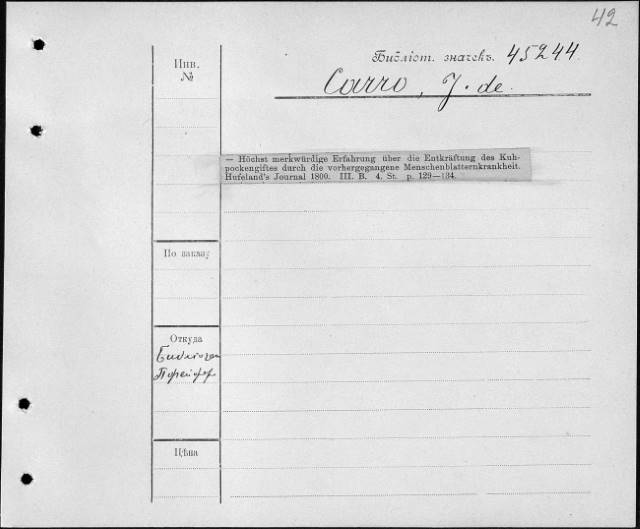 42
Инв.
№
Библіот. значекъ. 45244.
Carro, J. de.
— Höchst merkwürdige Erfahrung über die Entkräftung des Kuh-
pockengiftes durch die vorhergegangene Menschenblatternkrankheit.
Hufeland's Journal 1800. III. B. 4. St. p. 129—134.
По заказу
Откуда
Цѣна